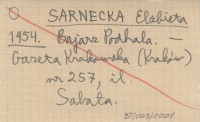 SARNECKA Elżbieta
1954. Bajarz Podhala. —
Gazeta Krakowska (Kraków)
nr 257, il.
Sabała.